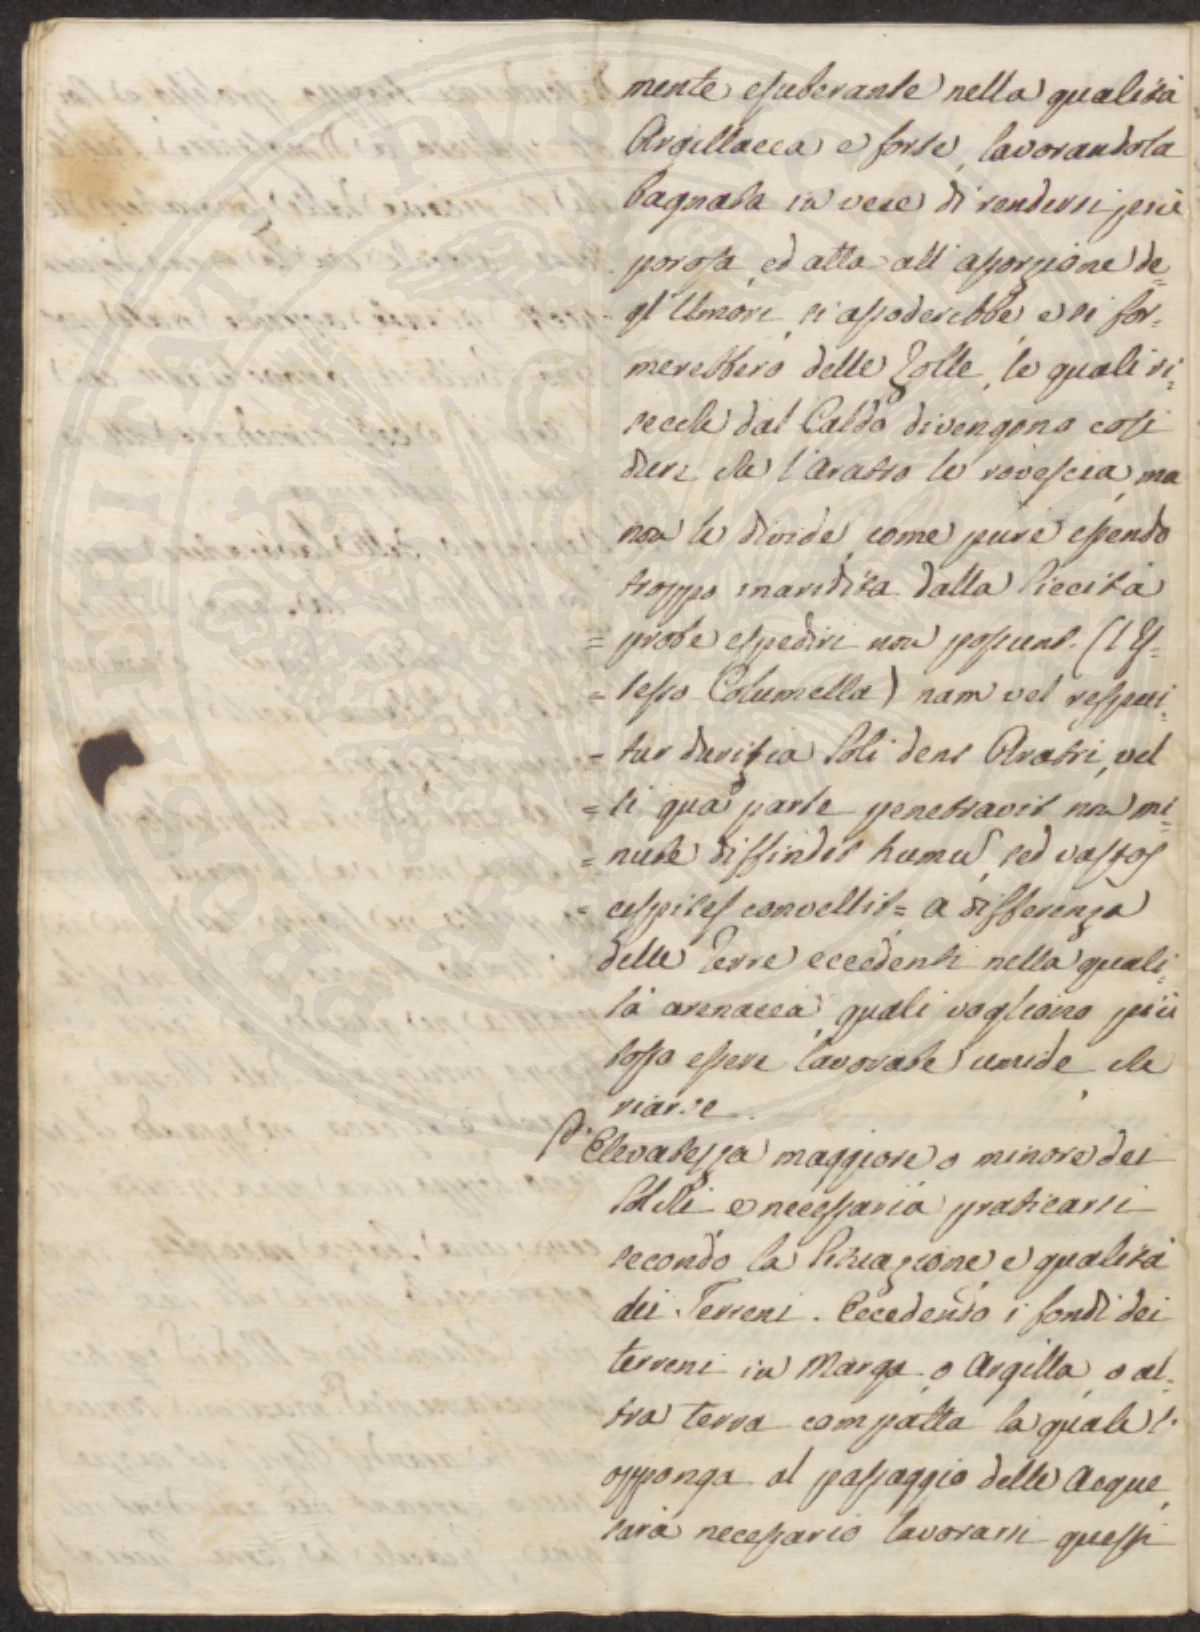 mente esuberante nella qualità
Argillacea e forte, lavorandola
bagnata in vece di rendersi più
porosa, ed atta all'asorzione de=
gl'Umori, si assoderebbe e si for=
merebbero delle Zolle, le quali ri=
secche dal Caldo divengono così
dure che l'Aratro le rovescia, ma
non le divide, come pure essendo
troppo inaridita dalla Siccità
= probe expediri non possunt. (l'Is=
= tesso Columella) nam vel respui=
= tur duritia Soli dens Aratri, vel
= si qua parte penetravit non mi=
= nute diffindit humu, sed vastos
= cespites convellit = a differenza
delle Terre eccedenti nella quali=
tà arenacea, quali vogliono più
tosto essere lavorate umide, che
riarse.
P. Elevatezza maggiore o minore dei
Solchi è necessaria praticarsi
secondo la Situazione, e qualità
dei Terreni. Eccedendo i fondi dei
terreni in Marga, o Argilla, o al=
tra terra compatta la quale s'
opponga al passaggio delle Acque,
sarà necessario lavorarsi questi